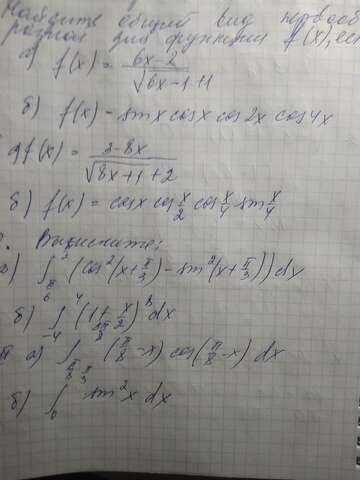 Найдите общий вид первооб
разной для функции f(x), ес
а) f(x) = 6x-2 / √6x-1+1
б) f(x) - sin x cos x cos 2x cos 4x
а) f(x) = 3-8x / √8x+1+2
б) f(x) = cos x cos x/2 cos x/4 sin x/4
Вычислите:
а) ∫ (cos²(x+π/3) - sin²(x+π/3)) dx
б) ∫ -4 4 (1+x/2)³ dx
а) ∫ (π/8 - x) cos(π/8 - x) dx
б) ∫ 0 sin²x dx